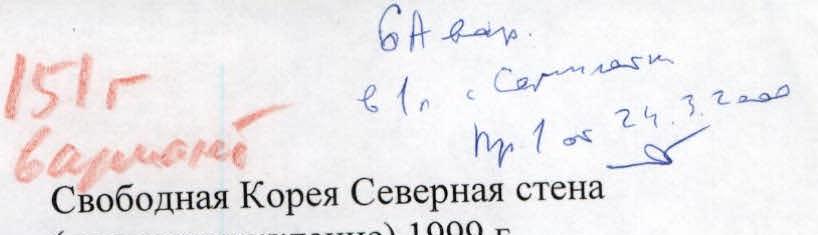 6А вар.
в 1л с
пр 1 от 24.3.2000
151г
вариант
Свободная Корея Северная стена
1999 г.